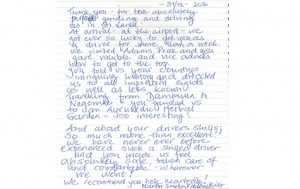 - 29/12 - 2015
Thank you - for the absolutely
guiding and driving
in Sri Lanka!
At arrival - at the airport - we
got ever so lucky to get you as
a driver for above a week.
We visited Adams Peak and you
gave valuable and nice advice
how to get to the top.
You told us your country's
intriguing history and directed
us to all important sights
as well as less known!
Travelling from Dambulla to
Negombo you guided us
to Jan Ayurvedic Herbal
Garden - so interesting!
And about your drivers skills;
So much more than excellent!
We have never ever before
experienced such a skilled driver
that you made us feel
absolutely safe, taken care of
and comfortable - wherever
we went!
We recommend you wholehearted!
Martin